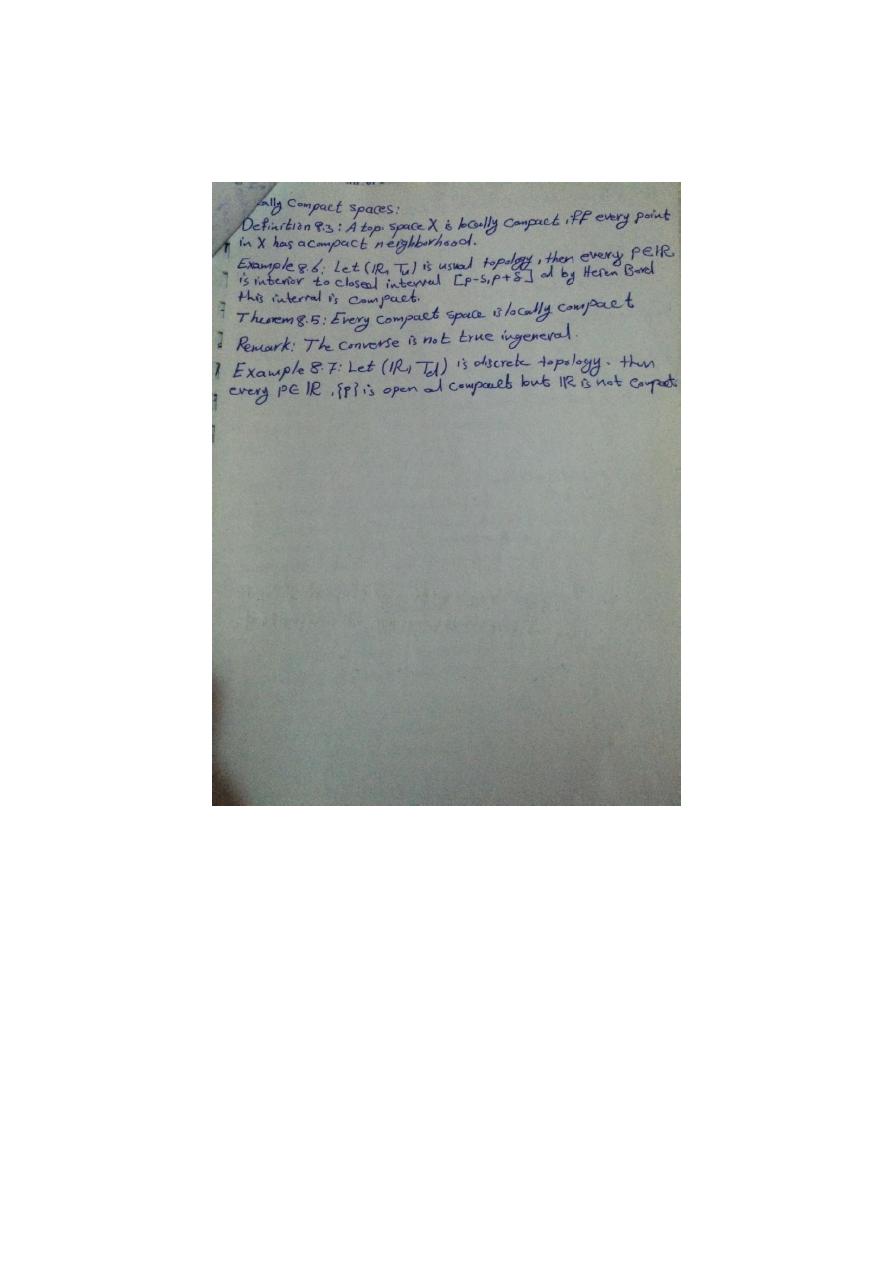 ally Compact spaces:
Definition 8.3: A top. space X is locally compact iff every point
in X has a compact neighborhood.
Example 8.6: Let (IR, Tu) is usual topology, then every p∈IR
is interior to closed interval [p-δ, p+δ] ad by Heren Borel
this interval is compact.
Theorem 8.5: Every compact space is locally compact
Remark: The converse is not true ingeneral.
Example 8.7: Let (IR, Td) is discrete topology. then
every p∈IR, {p} is open ad compact but IR is not compact